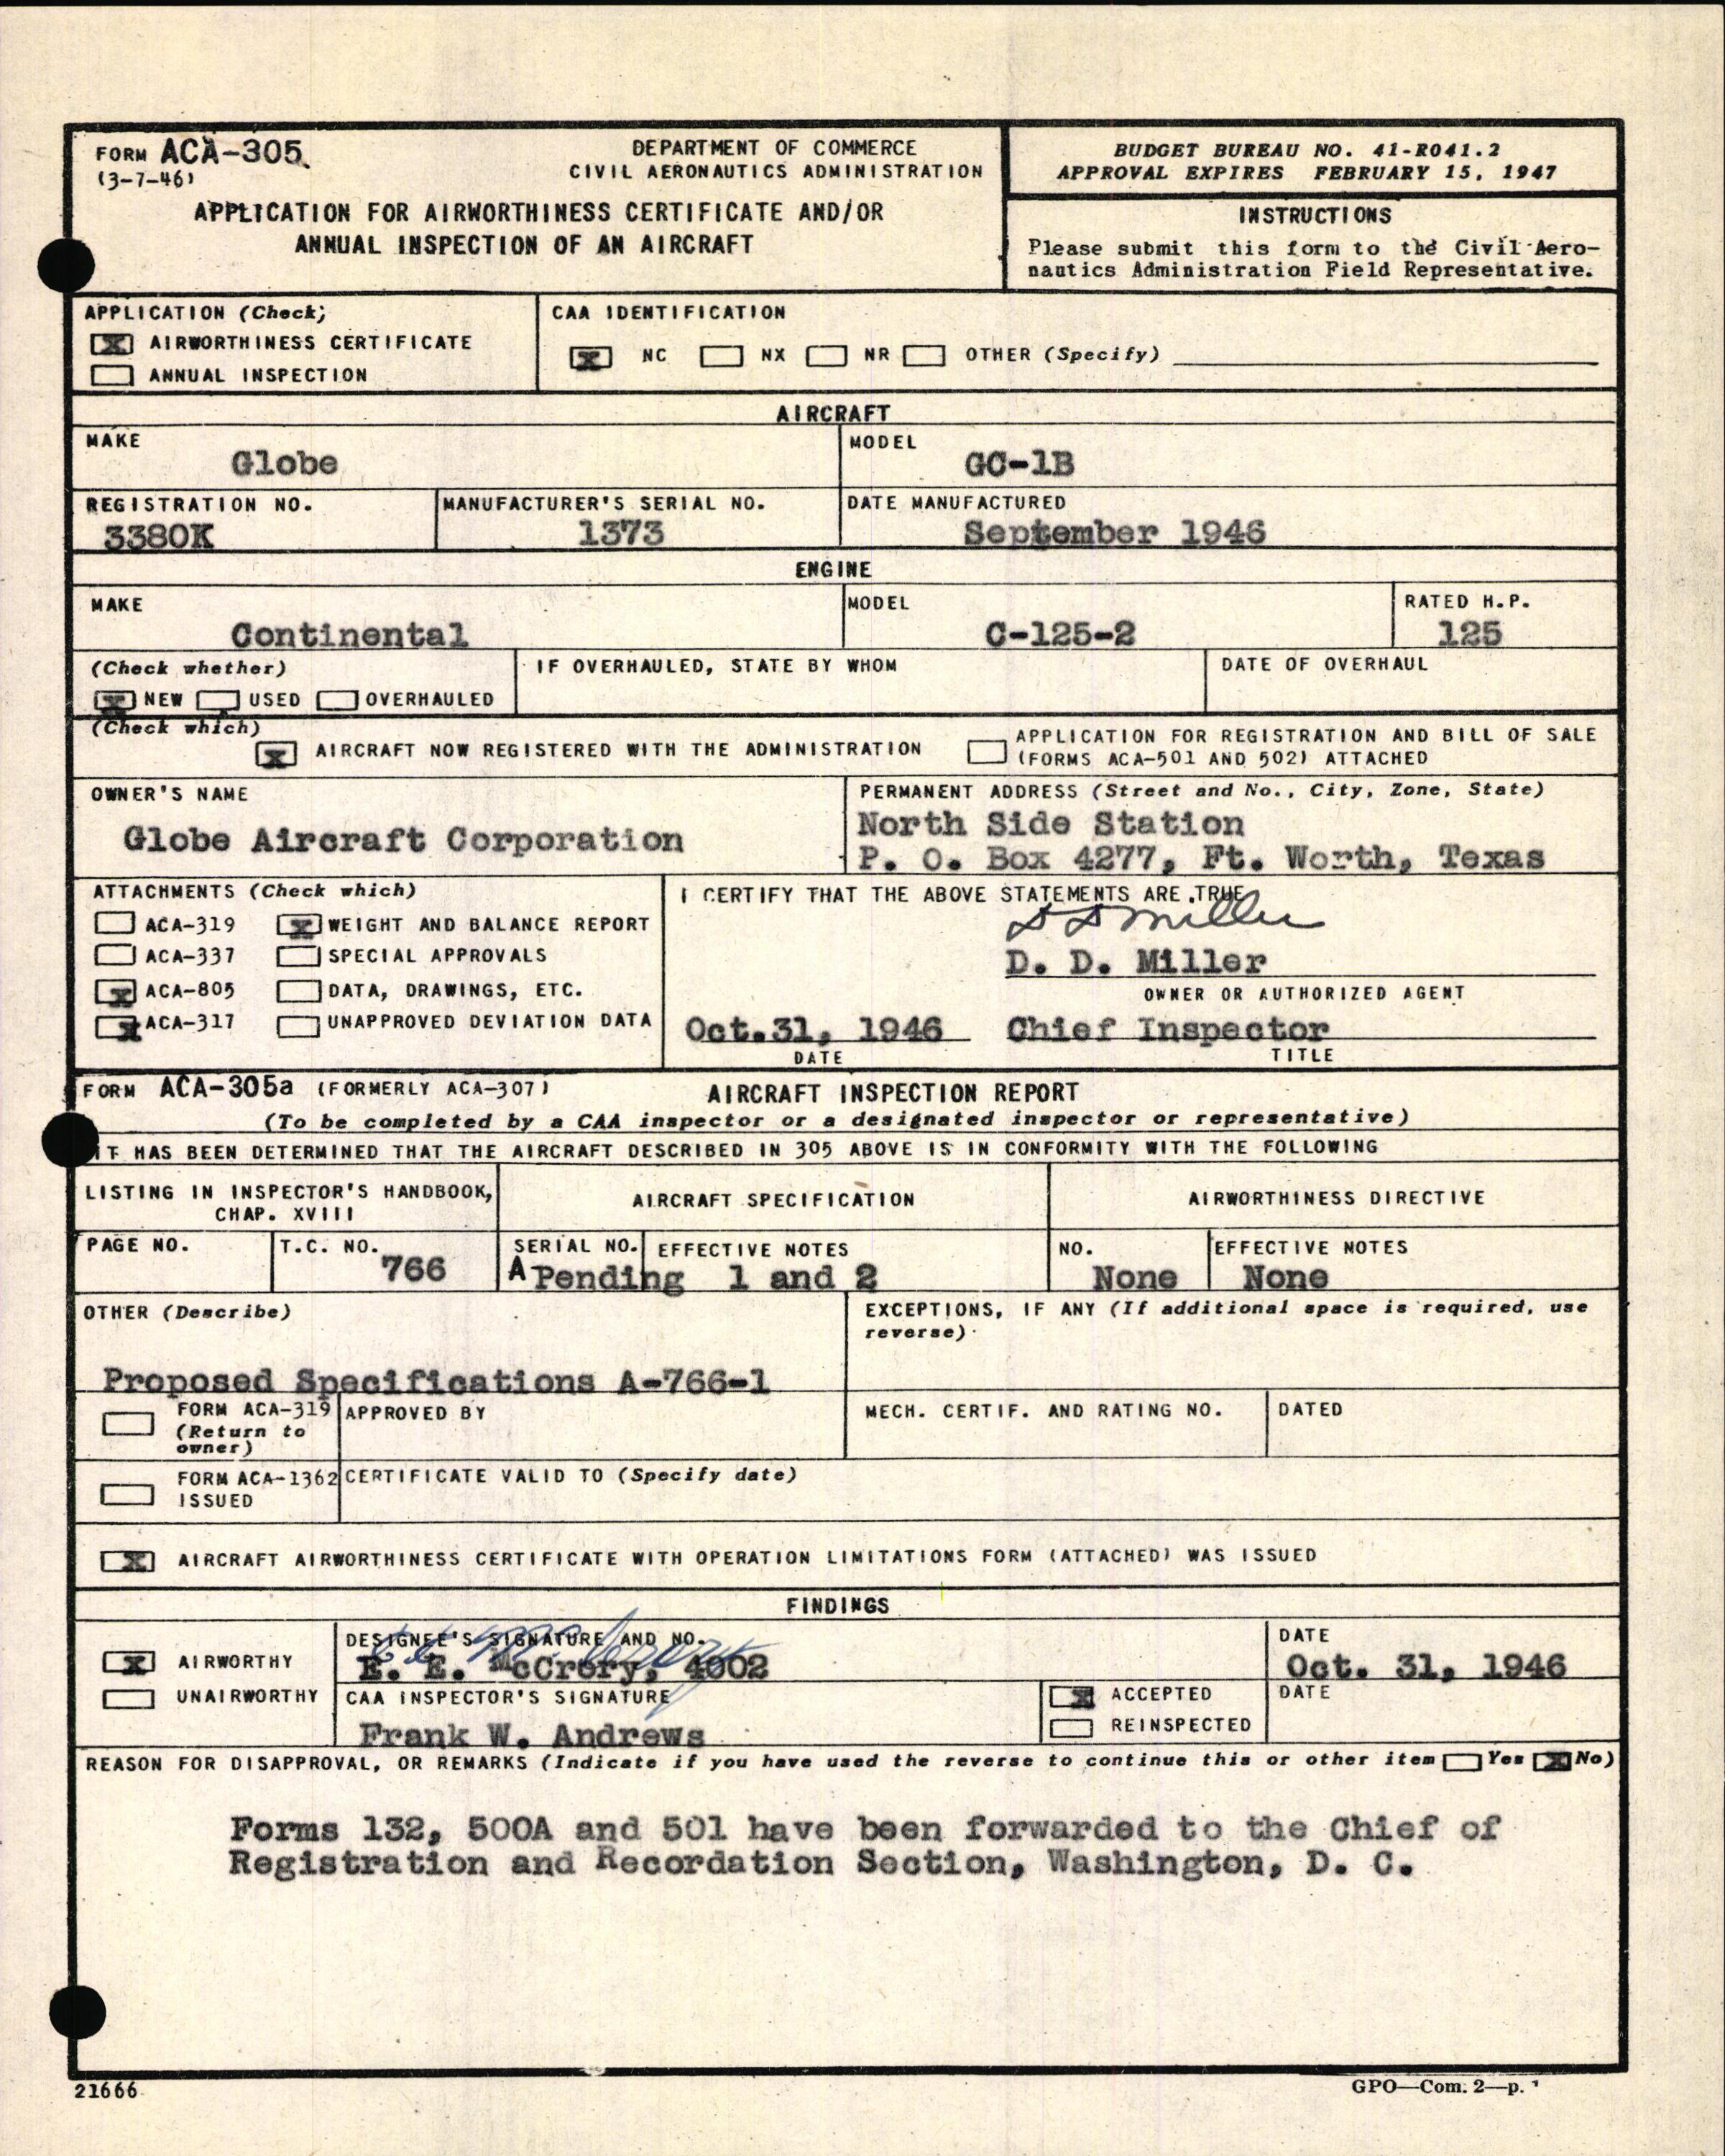 FORM ACA-305
(3-7-46)
DEPARTMENT OF COMMERCE
CIVIL AERONAUTICS ADMINISTRATION
APPLICATION FOR AIRWORTHINESS CERTIFICATE AND/OR
ANNUAL INSPECTION OF AN AIRCRAFT
BUDGET BUREAU NO. 41-R041.2
APPROVAL EXPIRES FEBRUARY 15, 1947
INSTRUCTIONS
Please submit this form to the Civil Aero-
nautics Administration Field Representative.
APPLICATION (Check)
X AIRWORTHINESS CERTIFICATE
ANNUAL INSPECTION
CAA IDENTIFICATION
X NC NX NR OTHER (Specify)
AIRCRAFT
MAKE
Globe
MODEL
GC-1B
REGISTRATION NO.
3380K
MANUFACTURER'S SERIAL NO.
1373
DATE MANUFACTURED
September 1946
ENGINE
MAKE
Continental
MODEL
C-125-2
RATED H.P.
125
(Check whether)
X NEW USED OVERHAULED
IF OVERHAULED, STATE BY WHOM
DATE OF OVERHAUL
(Check which)
X AIRCRAFT NOW REGISTERED WITH THE ADMINISTRATION
APPLICATION FOR REGISTRATION AND BILL OF SALE
(FORMS ACA-501 AND 502) ATTACHED
OWNER'S NAME
Globe Aircraft Corporation
PERMANENT ADDRESS (Street and No., City, Zone, State)
North Side Station
P. O. Box 4277, Ft. Worth, Texas
ATTACHMENTS (Check which)
ACA-319 X WEIGHT AND BALANCE REPORT
ACA-337 SPECIAL APPROVALS
X ACA-805 DATA, DRAWINGS, ETC.
X ACA-317 UNAPPROVED DEVIATION DATA
I CERTIFY THAT THE ABOVE STATEMENTS ARE TRUE
D D Miller
D. D. Miller
OWNER OR AUTHORIZED AGENT
Oct.31, 1946 Chief Inspector
DATE TITLE
FORM ACA-305a (FORMERLY ACA-307) AIRCRAFT INSPECTION REPORT
(To be completed by a CAA inspector or a designated inspector or representative)
IT HAS BEEN DETERMINED THAT THE AIRCRAFT DESCRIBED IN 305 ABOVE IS IN CONFORMITY WITH THE FOLLOWING
LISTING IN INSPECTOR'S HANDBOOK,
CHAP. XVIII
AIRCRAFT SPECIFICATION
AIRWORTHINESS DIRECTIVE
PAGE NO.
T.C. NO.
766
SERIAL NO.
A Pending
EFFECTIVE NOTES
1 and 2
NO.
None
EFFECTIVE NOTES
None
OTHER (Describe)
Proposed Specifications A-766-1
EXCEPTIONS, IF ANY (If additional space is required, use
reverse)
FORM ACA-319
(Return to
owner)
APPROVED BY
MECH. CERTIF. AND RATING NO.
DATED
FORM ACA-1362
ISSUED
CERTIFICATE VALID TO (Specify date)
X AIRCRAFT AIRWORTHINESS CERTIFICATE WITH OPERATION LIMITATIONS FORM (ATTACHED) WAS ISSUED
FINDINGS
X AIRWORTHY
UNAIRWORTHY
DESIGNEE'S SIGNATURE AND NO.
E. E. McCrory, 4002
DATE
Oct. 31, 1946
CAA INSPECTOR'S SIGNATURE
Frank W. Andrews
X ACCEPTED
REINSPECTED
DATE
REASON FOR DISAPPROVAL, OR REMARKS (Indicate if you have used the reverse to continue this or other item Yes X No)
Forms 132, 500A and 501 have been forwarded to the Chief of
Registration and Recordation Section, Washington, D. C.
21666
GPO—Com. 2—p.